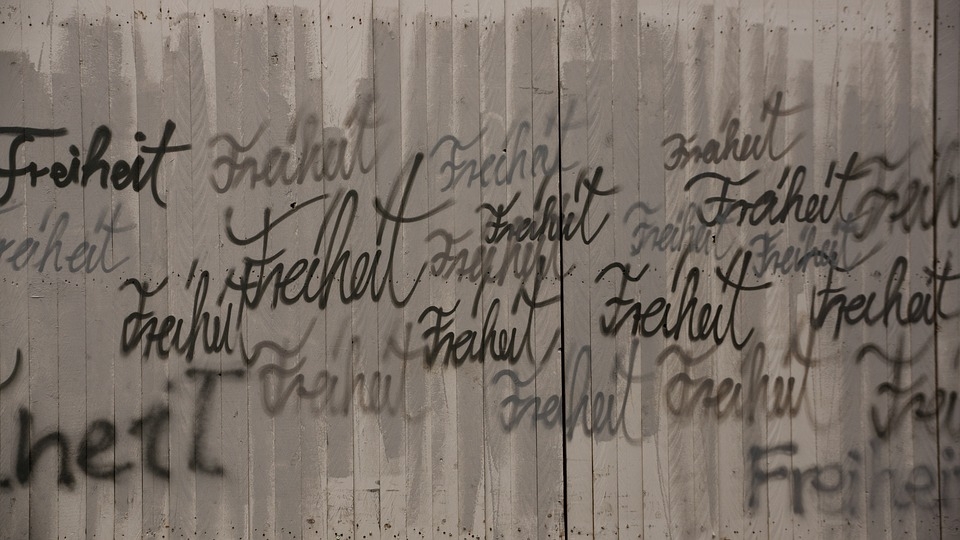 Freiheit Freiheit Freiheit Freiheit
Freiheit Freiheit Freiheit Freiheit Freih
reiheit Freiheit Freiheit Freiheit Freiheit
Freiheit Freiheit Freiheit Freiheit
Freiheit Freiheit Freiheit Frei
heit Freihei